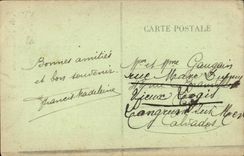 CARTE POSTALE
Bonnes amitiés
et bon souvenir.
Francis Madeleine
Mr et Mme Gaugain
rue
Vieux Logis
Langrune sur Mer
Calvados